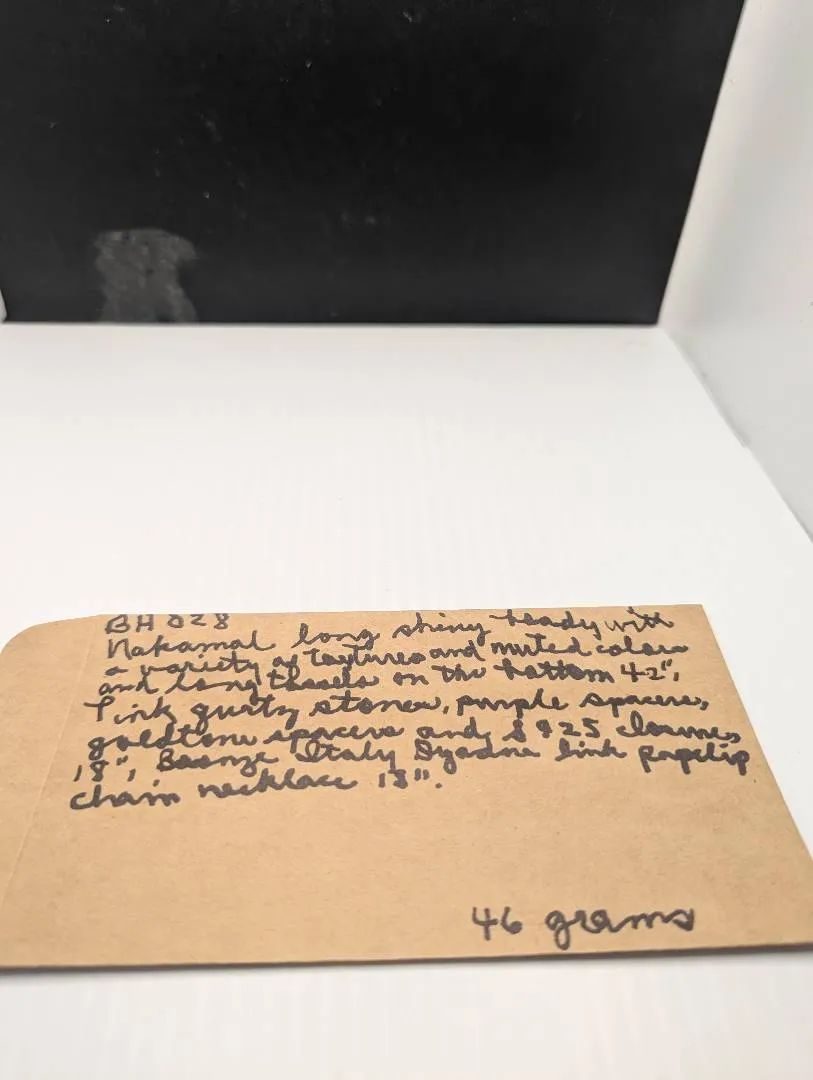 BH 028
Nakamal long shiny beady with
a variety of textures and muted colors
and long thassels on the bottom 42",
Pink qurtz stones, purple spacers,
goldtone spacers and S 925 closures
18", Bronze Italy link papclip
chain necklace 18".
46 grams